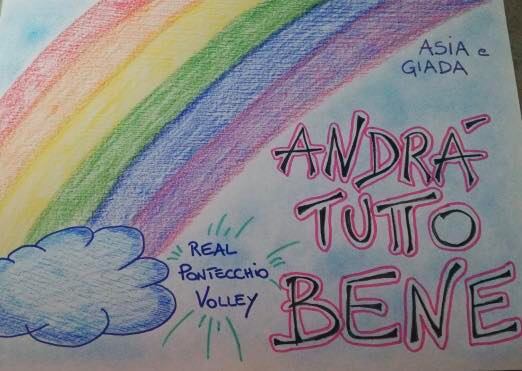 ASIA e
GIADA
ANDRÁ
TUTTO
BENE
REAL
PONTECCHIO
VOLLEY